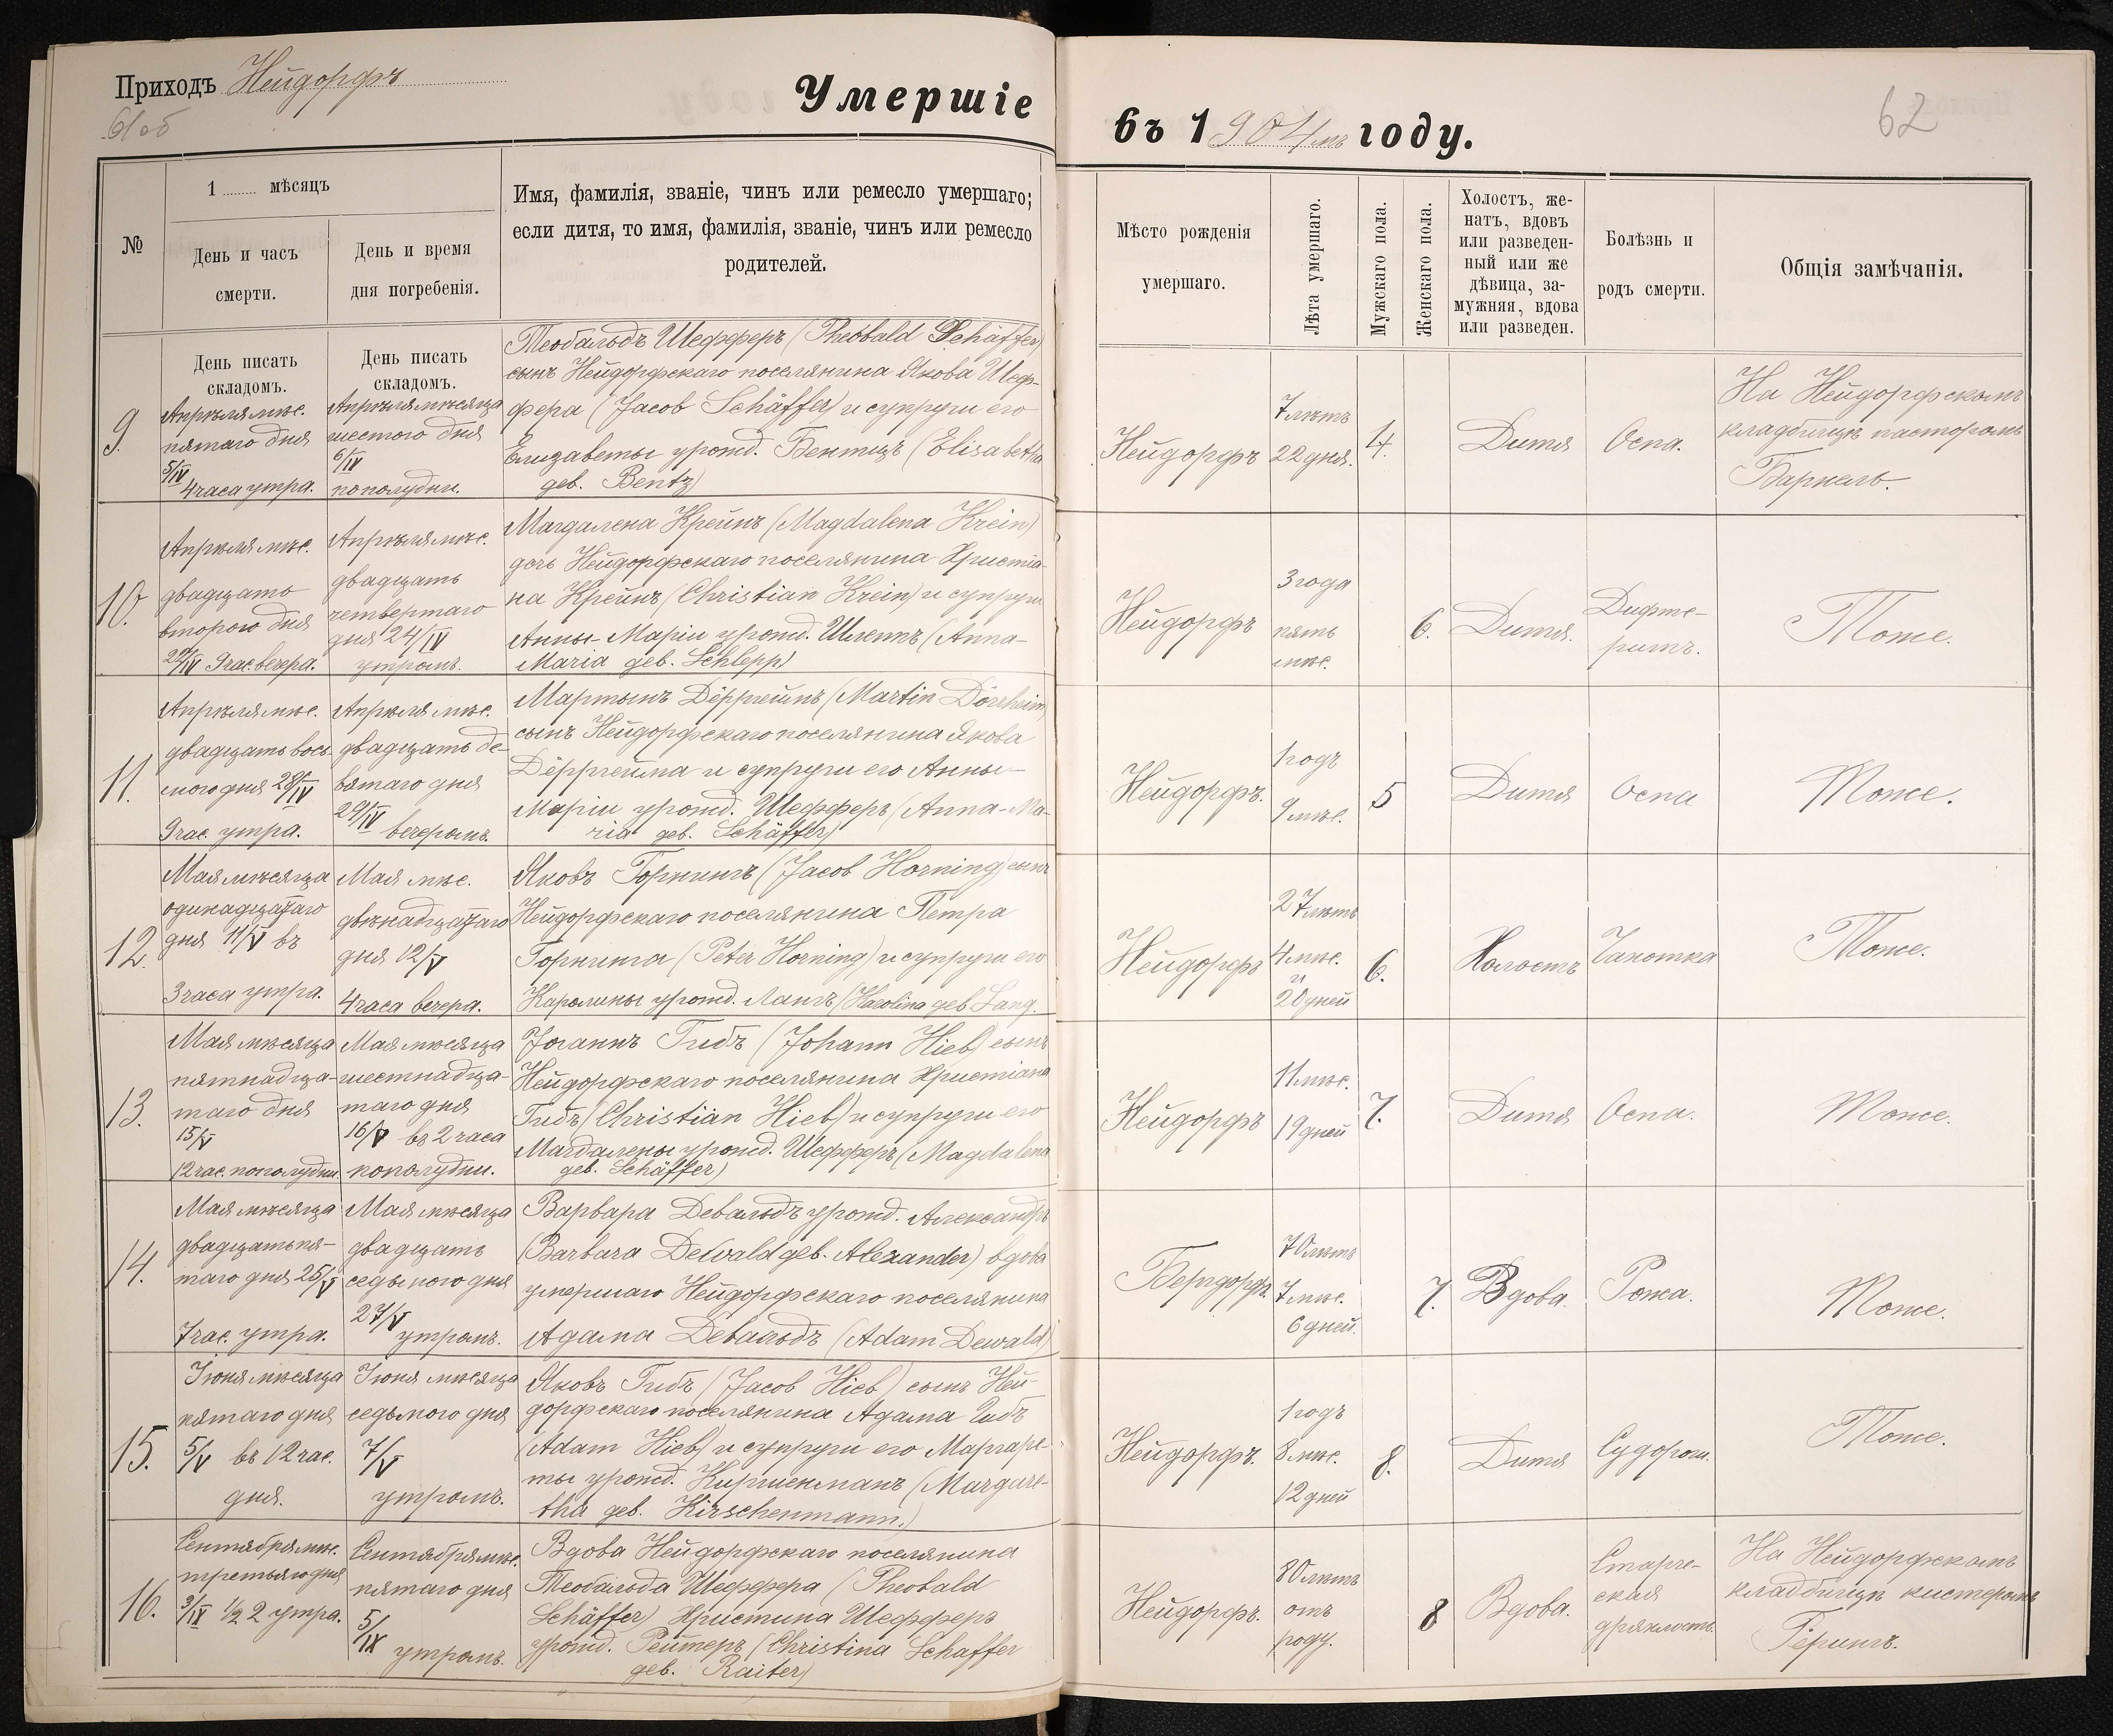 Приходъ Нейдорфъ
61об
Умершіе
въ 1904мъ году.
62
№
1 ......... мѣсяцъ
День и часъ
смерти.
День и время
дня погребенія.
Имя, фамилія, званіе, чинъ или ремесло умершаго;
если дитя, то имя, фамилія, званіе, чинъ или ремесло
родителей.
Мѣсто рожденія
умершаго.
Лѣта умершаго.
Мужскаго пола.
Женскаго пола.
Холостъ, же-
натъ, вдовъ
или разведен-
ный или же
дѣвица, за-
мужняя, вдова
или разведен.
Болѣзнь и
родъ смерти.
Общія замѣчанія.
День писать
складомъ.
День писать
складомъ.
9.
Апрѣля мѣс.
пятаго дня
5/IV
4 часа утра.
Апрѣля мѣсяца
шестого дня
6/IV
пополудни.
Теобальдъ Шефферъ (Theobald Schäffer)
сынъ Нейдорфскаго поселянина Якова Шеф-
фера (Jacob Schäffer) и супруги его
Елизаветы урожд. Бентцъ (Elisabetha
geb. Bentz)
Нейдорфъ
7 лѣтъ
22 дня.
4.
Дитя
Оспа.
На Нейдорфскомъ
кладбищѣ пасторомъ
Барнель.
10.
Апрѣля мѣс.
двадцать
второго дня
22/IV 9 час. вечера.
Апрѣля мѣс.
двадцать
четвертаго
дня 24/IV
утромъ.
Магдалена Крейнъ (Magdalena Krein)
дочь Нейдорфскаго поселянина Христіа-
на Крейнъ (Christian Krein) и супруги
Анны-Маріи урожд. Шлеппъ (Anna-
Maria geb. Schlepp)
Нейдорфъ
3 года
пять
мѣс.
6.
Дитя.
Дифте-
ритъ.
Тоже.
11.
Апрѣля мѣс.
двадцать вось-
мого дня 28/IV
9 час. утра.
Апрѣля мѣс.
двадцать де-
вятаго дня
29/IV вечеромъ.
Мартынъ Дёрргеймъ (Martin Dörrheim)
сынъ Нейдорфскаго поселянина Якова
Дёрргейма и супруги его Анны-
Маріи урожд. Шефферъ (Anna-Ma-
ria geb. Schäffer)
Нейдорфъ.
1 годъ
9 мѣс.
5
Дитя
Оспа
Тоже.
12.
Мая мѣсяца
одинадцатаго
дня 11/V въ
3 часа утра.
Мая мѣс.
двѣнадцатаго
дня 12/V
4 часа вечера.
Яковъ Горнингъ (Jacob Horning) сынъ
Нейдорфскаго поселянина Петра
Горнинга (Peter Horning) и супруги его
Каролины урожд. Лангъ (Karolina geb. Lang.
Нейдорфъ
27 лѣтъ
4 мѣс.
и
20 дней
6.
Холостъ
Чахотка
Тоже.
13.
Мая мѣсяца
пятнадца-
таго дня
15/V
12 час. пополудни.
Мая мѣсяца
шестнадца-
таго дня
16/V въ 2 часа
пополудни.
Іоганнъ Гибъ (Johann Hieb) сынъ
Нейдорфскаго поселянина Христіана
Гибъ (Christian Hieb) и супруги его
Магдалены урожд. Шефферъ (Magdalena
geb. Schäffer)
Нейдорфъ
11 мѣс.
19 дней
7.
Дитя
Оспа.
Тоже.
14.
Мая мѣсяца
двадцать пя-
таго дня 25/V
7 час. утра.
Мая мѣсяца
двадцать
седьмого дня
27/V
утромъ.
Варвара Девальдъ урожд. Александръ
(Barbara Dewald geb. Alexander) вдова
умершаго Нейдорфскаго поселянина
Адама Девальдъ (Adam Dewald)
Бергдорфъ.
70 лѣтъ
7 мѣс.
6 дней.
7.
Вдова.
Рожа.
Тоже.
15.
Іюня мѣсяца
пятаго дня
5/V въ 12 час.
дня.
Іюня мѣсяца
седьмого дня
7/V
утромъ.
Яковъ Гибъ (Jacob Hieb) сынъ Ней-
дорфскаго поселянина Адама Гибъ
(Adam Hieb) и супруги его Маргаре-
ты урожд. Киршенманъ (Margare-
tha geb. Kirschenmann.)
Нейдорфъ.
1 годъ
8 мѣс.
12 дней
8.
Дитя
Судорож.
Тоже.
16.
Сентября мѣс.
третьяго дня
3/IV 1/2 2 утра.
Сентября мѣс.
пятаго дня
5/IX
утромъ.
Вдова Нейдорфскаго поселянина
Теобальда Шеффера (Theobald
Schäffer) Христина Шефферъ
урожд. Рейтеръ (Christina Schaffer
geb. Raiter)
Нейдорфъ.
80 лѣтъ
отъ
роду.
8
Вдова.
Старче-
ская
дряхлость.
На Нейдорфскомъ
кладбищѣ кистеромъ
Герингъ.